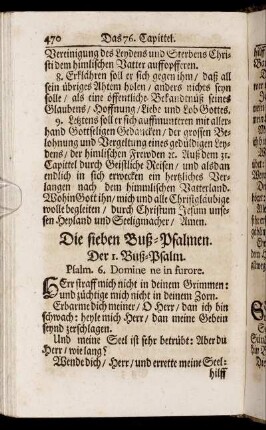 470 Das 76. Capittel.
Vereinigung des Leydens und Sterbens Chri-
sti dem himlischen Vatter auffopfferen.
8. Erklähren soll er sich gegen ihm / daß all
sein übriges Athem holen / anders nichts seyn
solle / als eine öffentliche Bekandtnüß seines
Glaubens / Hoffnung / Liebe und Lob Gottes.
9. Letztens soll er sich auffmunteren mit aller-
hand Gottseligen Gedancken / der grossen Be-
lohnung und Vergeltung eines gedüldigen Ley-
dens / der himlischen Freuden ec. Auß dem 31.
Capittel durch Geistliche Reisen / und alsdan
endlich in sich erwecken ein hertzliches Ver-
langen nach dem himmlischen Vatterland.
Wohin Gott ihn / mich und alle Christglaubige
wolle begleiten / durch Christum Jesum unse-
sen Heyland und Seeligmacher / Amen.
Die sieben Buß-Psalmen.
Der 1. Buß-Psalm.
Psalm. 6. Domine ne in furore.
HErr straff mich nicht in deinem Grimmen:
und züchtige mich nicht in deinem Zorn.
Erbarme dich meiner / O Herr / dan ich bin
schwach: heyle mich Herr / dan meine Gebein
seynd zerschlagen.
Und meine Seel ist sehr betrübt: Aber du
Herr / wie lang?
Wende dich / Herr / und errette meine Seel:
hilff